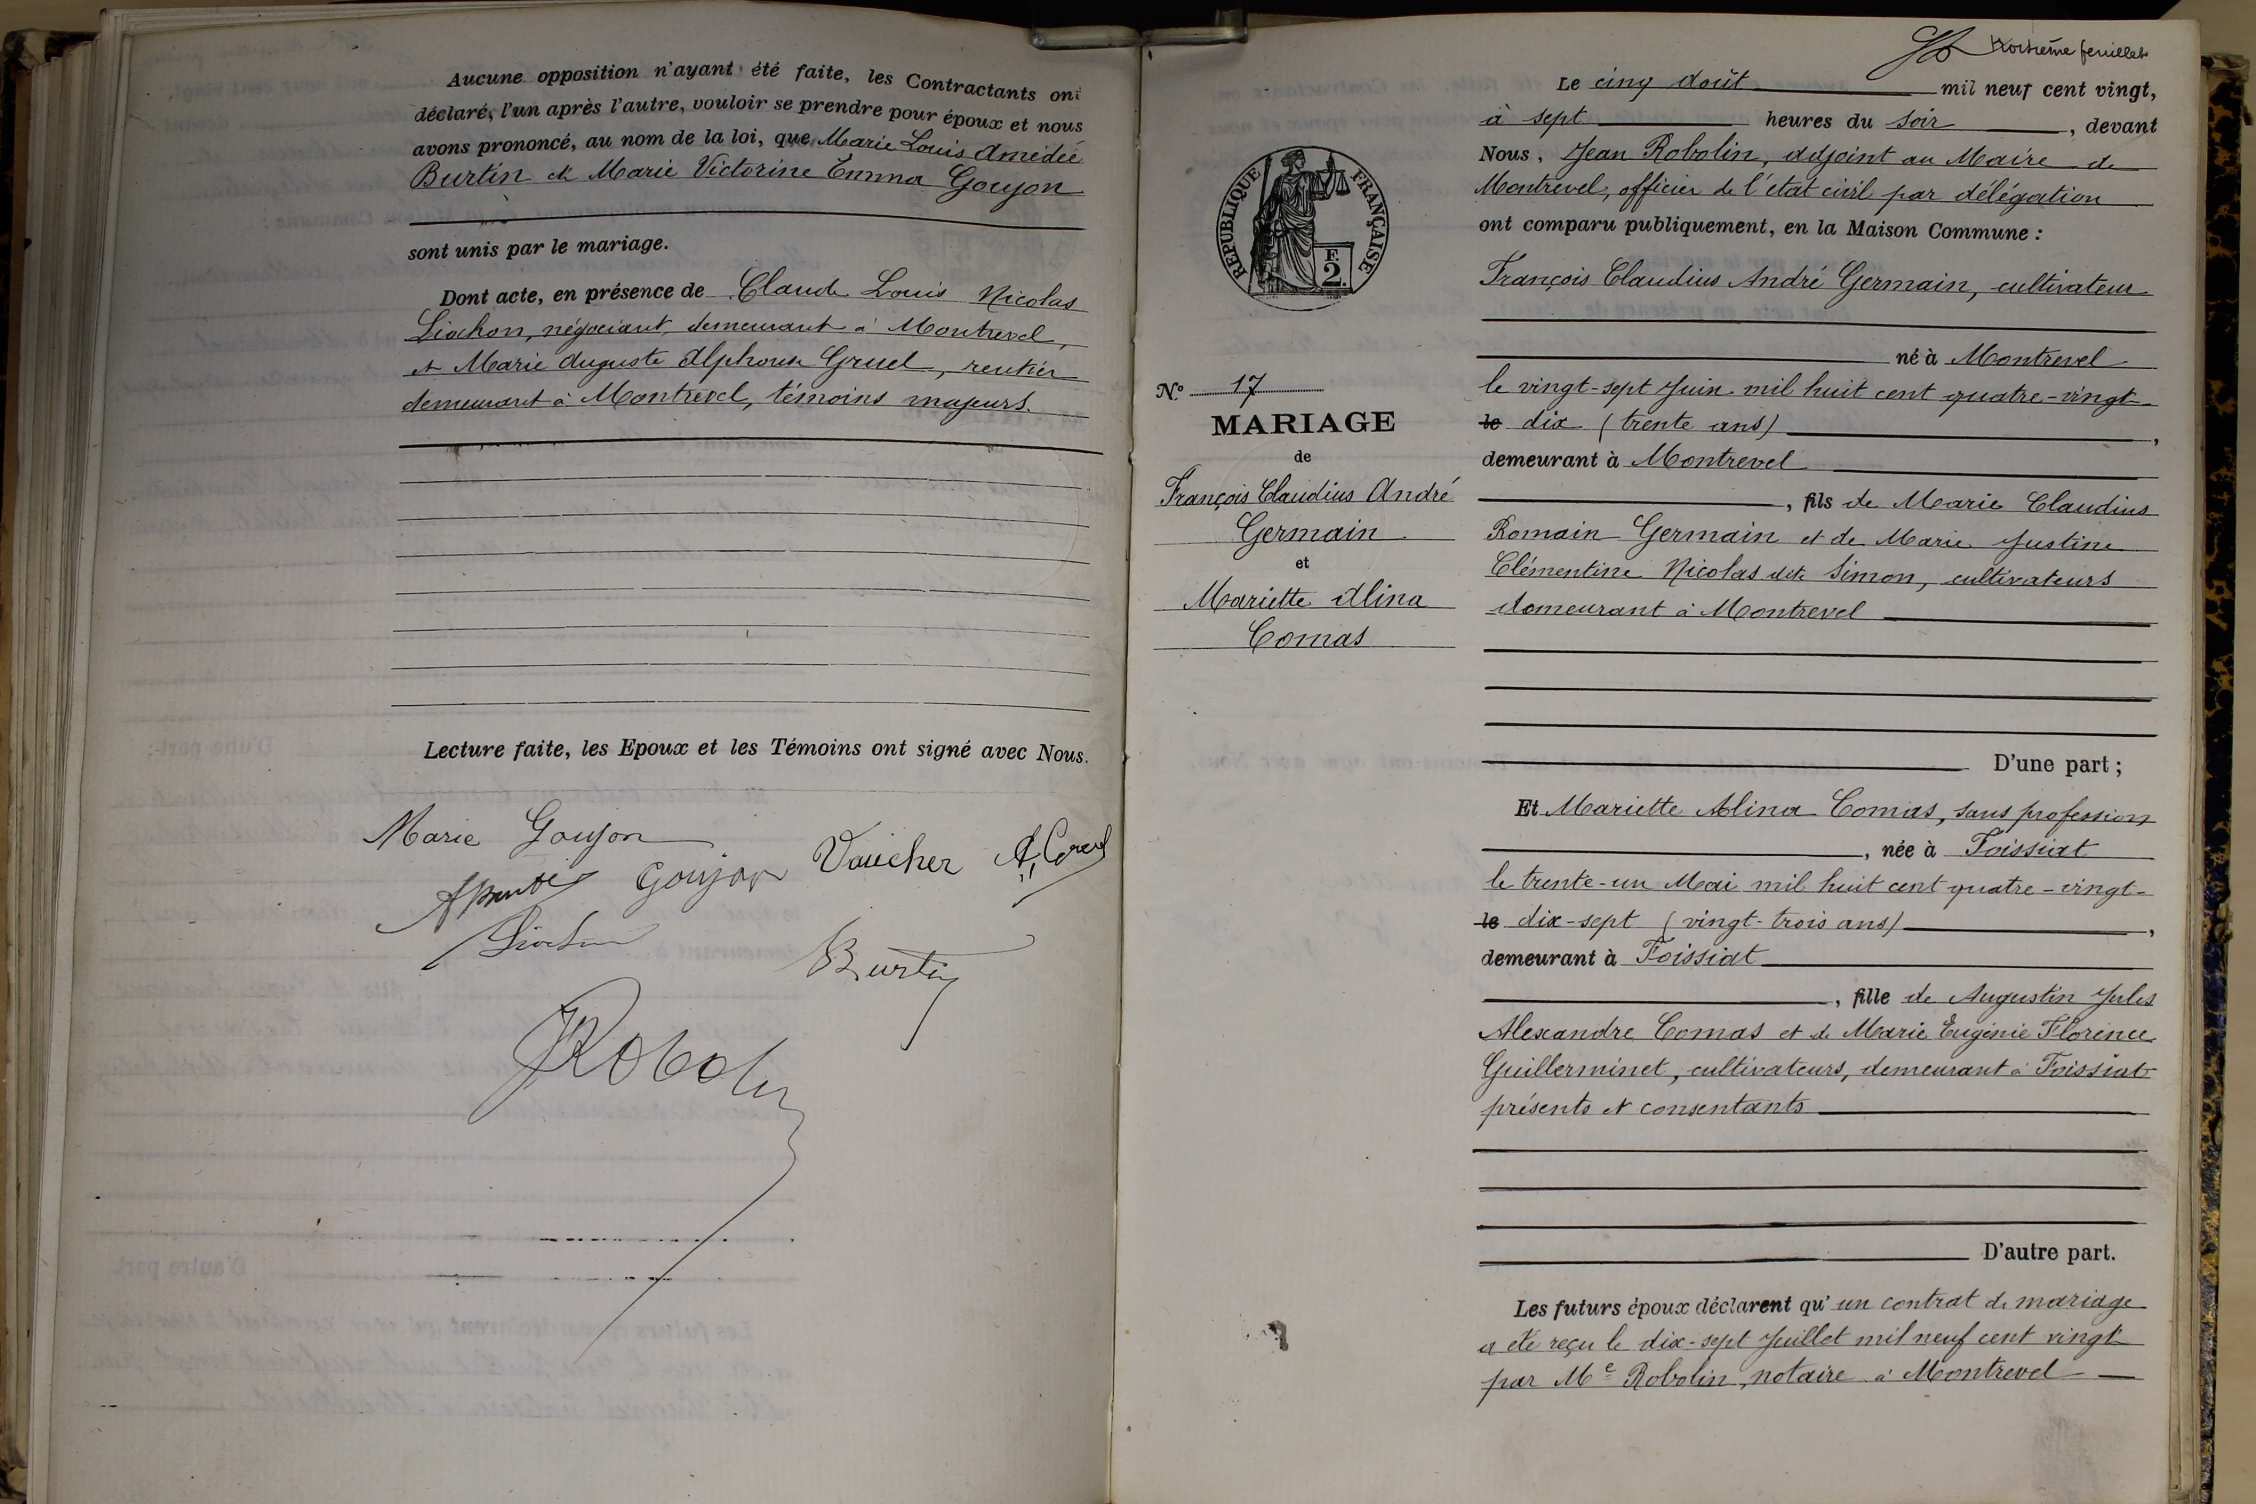 Aucune opposition n'ayant été faite, les Contractants ont
déclaré, l'un après l'autre, vouloir se prendre pour époux et nous
avons prononcé, au nom de la loi, que Marie Louis Amédée
Burtin et Marie Victorine Emma Goujon
sont unis par le mariage.
Dont acte, en présence de Claude Louis Nicolas
Liochon, négociant demeurant à Montrevel,
et Marie Auguste Alphonse Gruel, rentier
demeurant à Montrevel, témoins majeurs.
Lecture faite, les Epoux et les Témoins ont signé avec Nous.
Marie Goujon
Goujon Vaucher
Liochon
Burtin
JRobolin
troisième feuillet
Le cinq Août mil neuf cent vingt,
à sept heures du soir, devant
Nous, Jean Robolin, adjoint au Maire de
Montrevel, officier de l'état civil par délégation
ont comparu publiquement, en la Maison Commune :
François Claudius André Germain, cultivateur
né à Montrevel
le vingt-sept Juin mil huit cent quatre-vingt-
le dix (trente ans),
demeurant à Montrevel
, fils de Marie Claudius
Romain Germain et de Marie Justine
Clémentine Nicolas dite Simon, cultivateurs
demeurant à Montrevel
D'une part ;
Et Mariette Alina Comas, sans profession
, née à Foissiat
le trente-un Mai mil huit cent quatre-vingt-
le dix-sept (vingt-trois ans),
demeurant à Foissiat
, fille de Augustin Jules
Alexandre Comas et de Marie Eugénie Florence
Guillerminet, cultivateurs, demeurant à Foissiat
présents et consentants
D'autre part.
Les futurs époux déclarent qu'un contrat de mariage
a été reçu le dix-sept Juillet mil neuf cent vingt
par Me Robolin, notaire à Montrevel
REPUBLIQUE FRANÇAISE
F.
2.
N.º 17
MARIAGE
de
François Claudius André
Germain
et
Mariette Alina
Comas